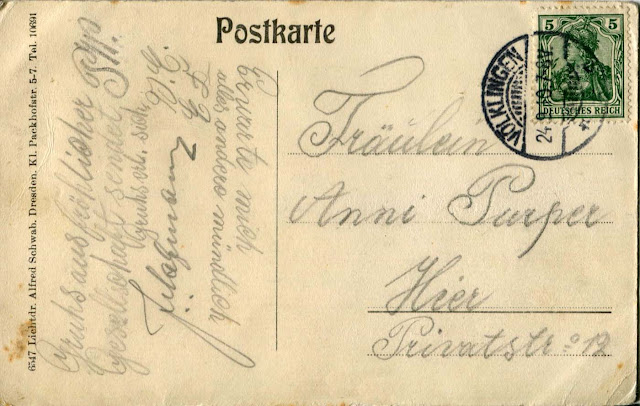 Postkarte
5
5
DEUTSCHES REICH
VÖLKLINGEN
24
Fräulein
Anni Purper
Hier
Privatstr. 12
6547 Lichtdr. Alfred Schwab. Dresden. Kl. Packhofstr. 5-7. Tel. 10691
Gruhs aus fröhlicher
Gesellschaft sendet
Erwarte mich
alles andere mündlich